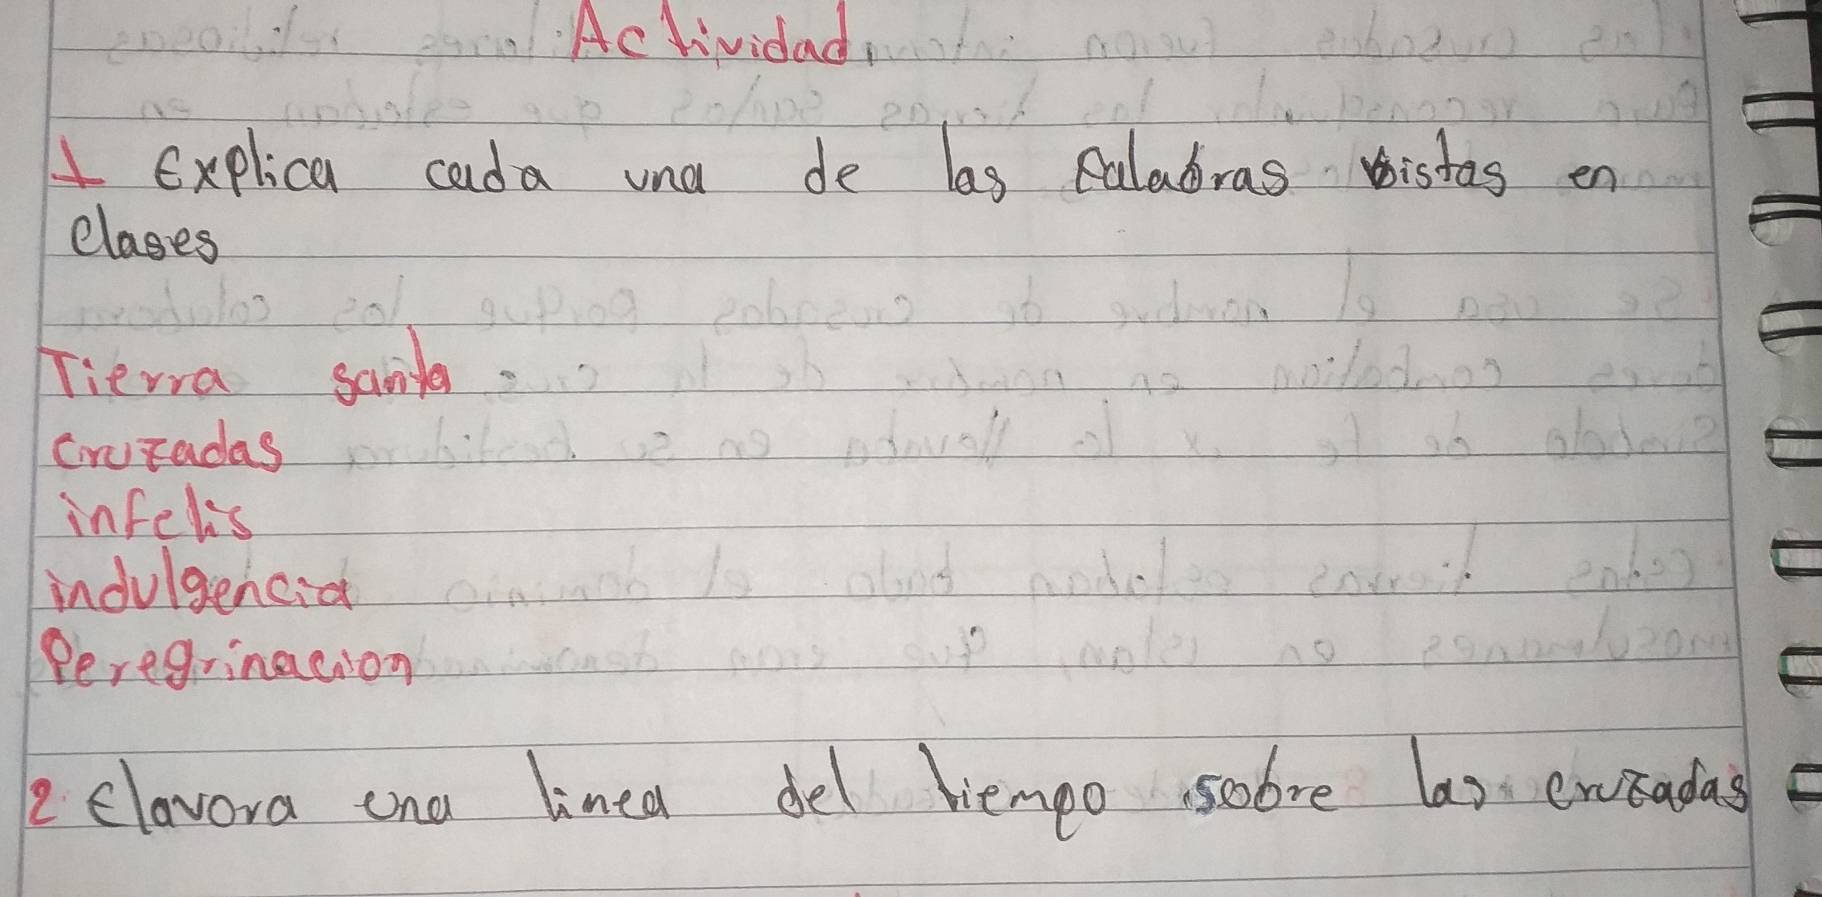 Actividad
1 Explica cada una de las palabras vistas en
clases
Tierra santa
cruzadas
infelis
indulgencia
Peregrinacion
2 Elavora una linea del tiempo sobre las cruzadas